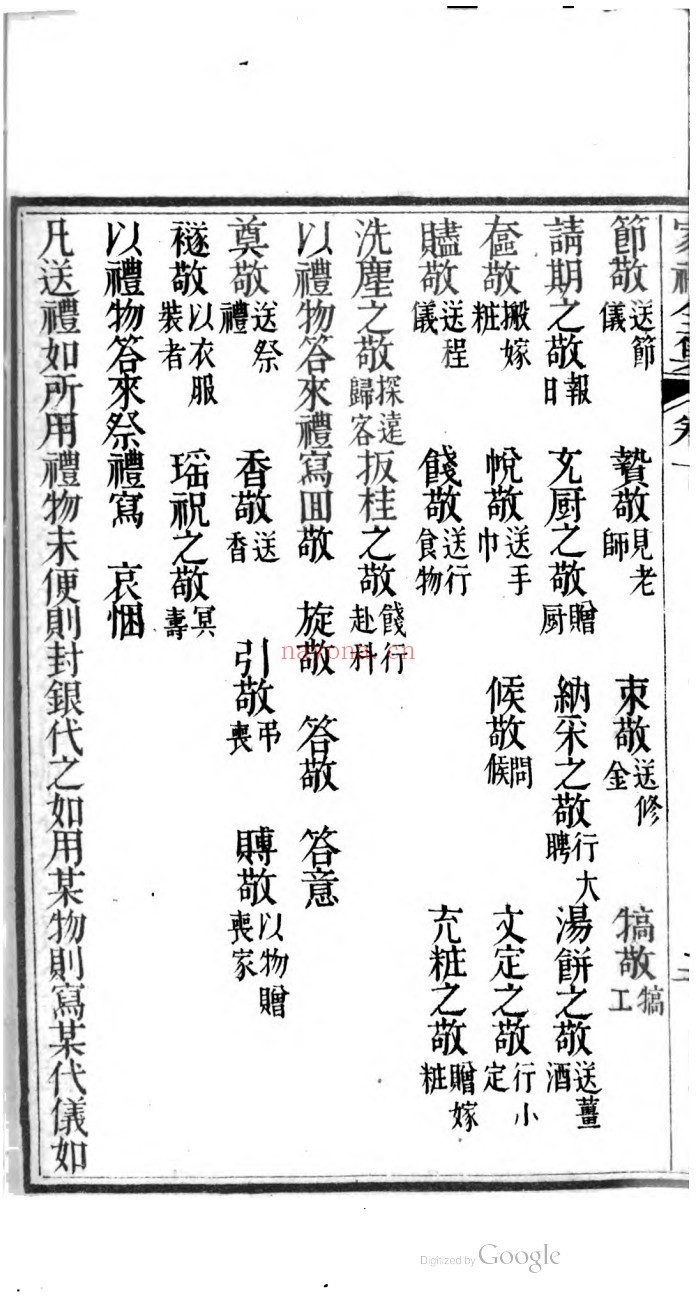 節敬送節儀 贄敬見老師 束敬送修金 犒敬犒工
請期之敬報日 烹厨之敬贈厨 納采之敬行大聘 湯餅之敬送薑酒
奩敬搬嫁粧 帨敬送手巾 候敬問候 文定之敬行小定
贐敬送程儀 餞敬送行食物 充粧之敬贈嫁粧
洗塵之敬探遠歸客 扳桂之敬餞行赴科
以禮物答來禮寫回敬 旋敬 答敬 答意
奠敬送祭禮 香敬送香 引敬弔喪 賻敬以物贈喪家
襚敬以衣服裝者 瑶祝之敬冥壽
以禮物答來祭禮寫 哀悃
凡送禮如所用禮物未便則封銀代之如用某物則寫某代儀如
nayona.cn
Digitized by Google